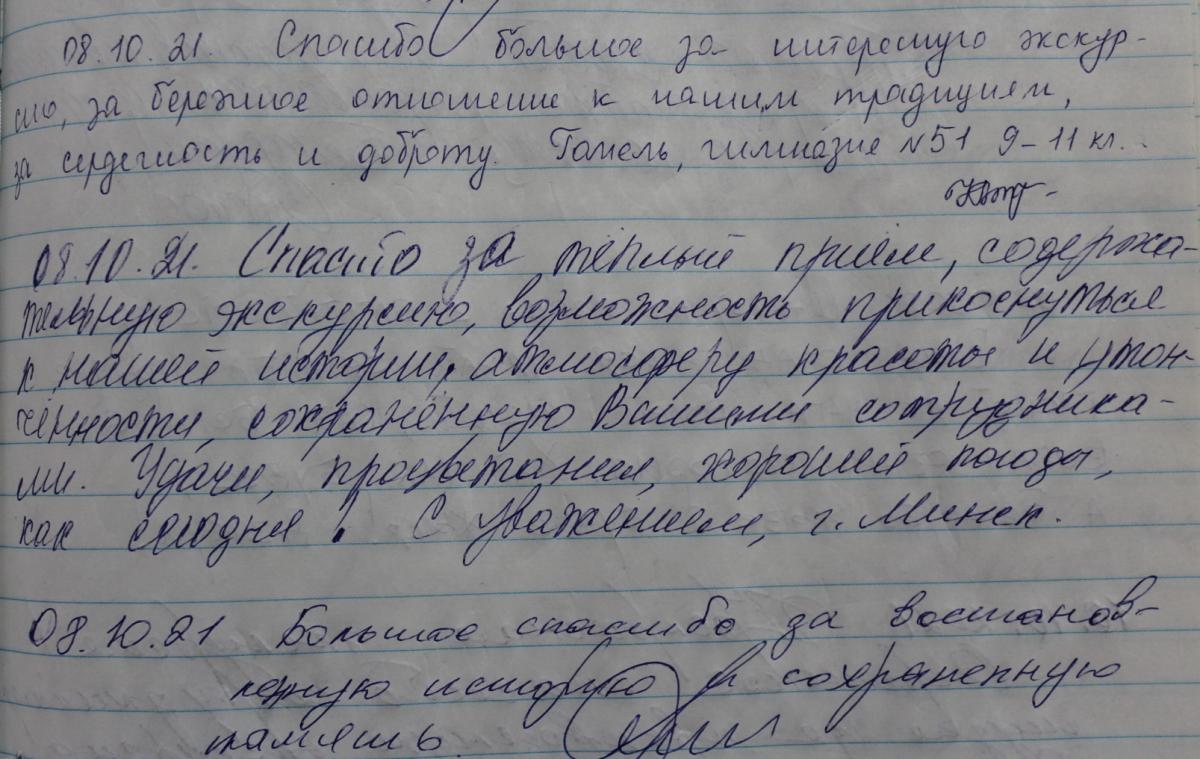 08.10.21. Спасибо большое за интересную экскур-
сию, за бережное отношение к нашим традициям,
за сердечность и доброту. Гомель, гимназия №51 9-11 кл.
08.10.21. Спасибо за тёплый приём, содержа-
тельную экскурсию, возможность прикоснуться
к нашей истории, атмосферу красоты и утон-
чённости, сохранённую Вашими сотрудника-
ми. Удачи, процветания, хорошей погоды,
как сегодня! С уважением, г. Минск.
08.10.21 Большое спасибо за востанов-
леную историю и сохраненную
память